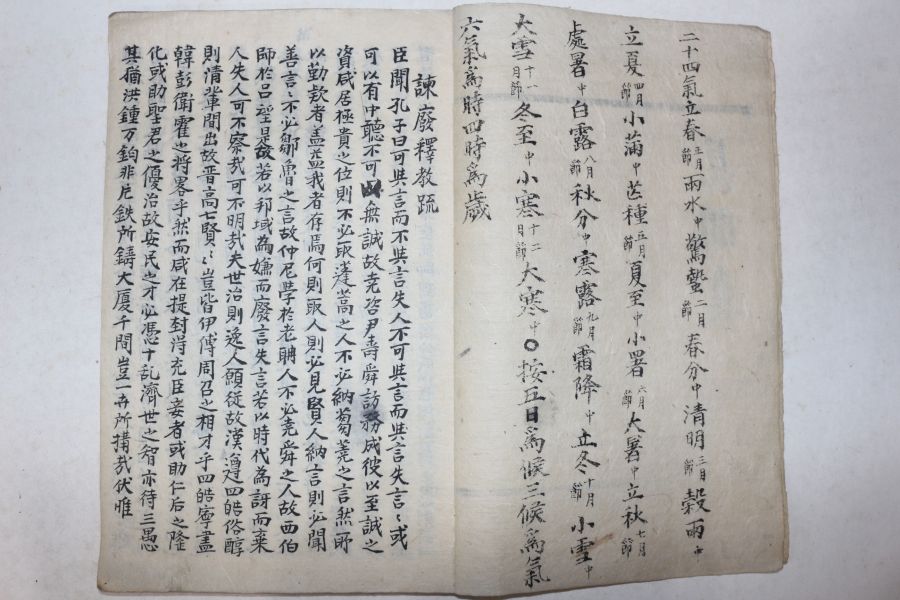 二十四氣立春正月節雨水中驚蟄二月節春分中清明三月節穀雨中
立夏四月節小滿中芒種五月節夏至中小署六月節大暑中立秋七月節
處暑中白露八月節秋分中寒露九月節霜降中立冬十月節小雪中
大雪十一月節冬至中小寒十二月節大寒中〇按五日爲候三候爲氣
六氣爲時四時爲歲
諫廢釋教疏
臣聞孔子曰可與言而不與言失人不可與言而與言失言〻或
可以有中聽不可以無誠故堯咨尹壽舜訪務成彼以至誠之
資咸居極貴之位則不必取蓬蒿之人不必納蒭蕘之言然所
以勤欵者盖益我者存焉何則取人則必見賢人納言則必聞
善言〻不必鄒魯之言故仲尼學於老聃人不必堯舜之人故西伯
師於呂望是故若以邦域為嫌而廢言失言若以時代為訝而棄
人失人可不察哉可不明哉夫世治則逸人願從故漢邀四皓俗醇
則清輩間出故晋高七賢〻豈皆伊傅周召之相才乎四皓寧盡
韓彭衛霍之將畧乎然而咸在提封得充臣妾者或助仁后之隆
化或助聖君之優治故安民之才必憑十乱濟世之智亦待三愚
其猶洪鍾万鈞非片鉄所鑄大厦千間豈一卉所搆哉伏惟